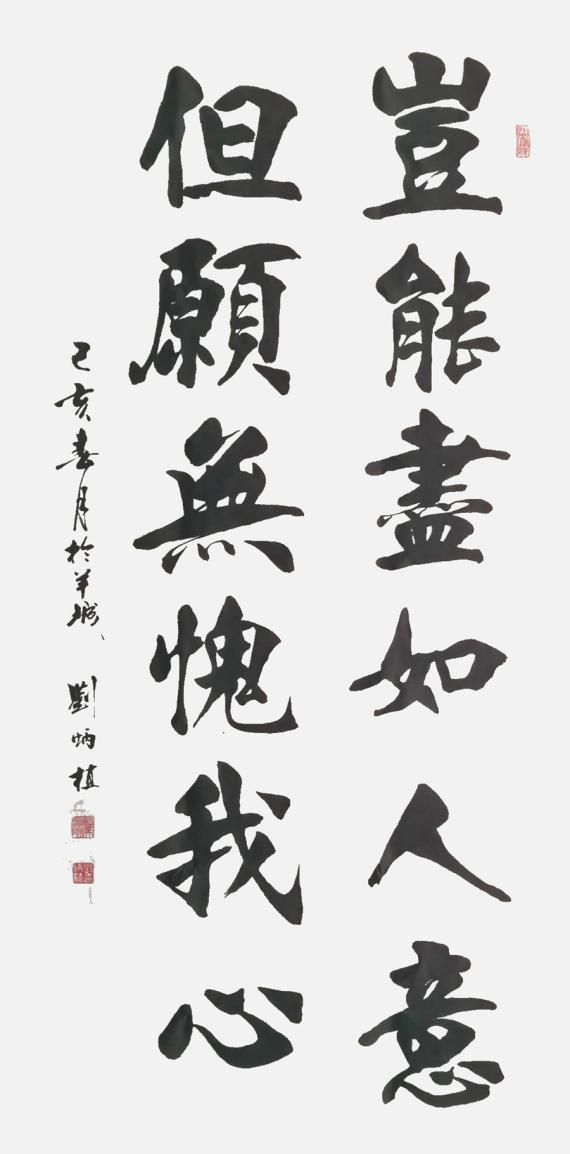 豈能盡如人意
但願無愧我心
己亥春月於羊城 劉炳植